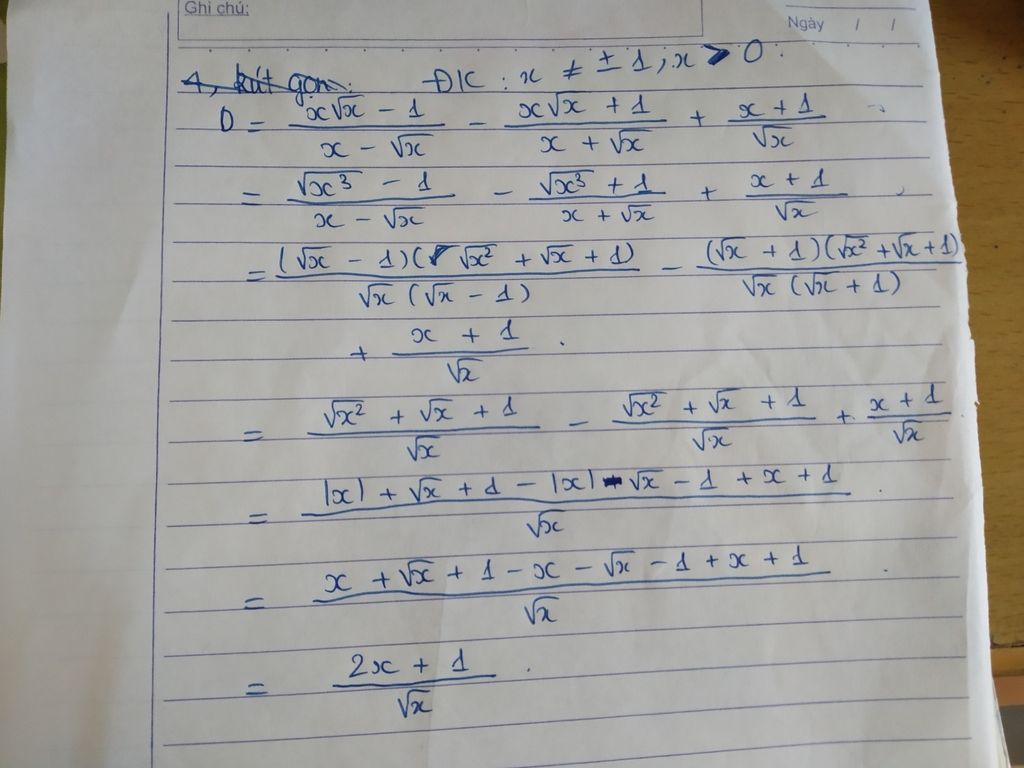 Ghi chú:
Ngày / /
4, Rút gọn: ĐK : x ≠ ± 1 ; x > 0 .
D = \frac{x√x - 1}{x - √x} - \frac{x√x + 1}{x + √x} + \frac{x + 1}{√x}
= \frac{√x³ - 1}{x - √x} - \frac{√x³ + 1}{x + √x} + \frac{x + 1}{√x}
= \frac{(√x - 1)(√x² + √x + 1)}{√x (√x - 1)} - \frac{(√x + 1)(√x² + √x + 1)}{√x (√x + 1)}
+ \frac{x + 1}{√x} .
= \frac{√x² + √x + 1}{√x} - \frac{√x² + √x + 1}{√x} + \frac{x + 1}{√x}
= \frac{|x| + √x + 1 - |x| - √x - 1 + x + 1}{√x} .
= \frac{x + √x + 1 - x - √x - 1 + x + 1}{√x} .
= \frac{2x + 1}{√x} .